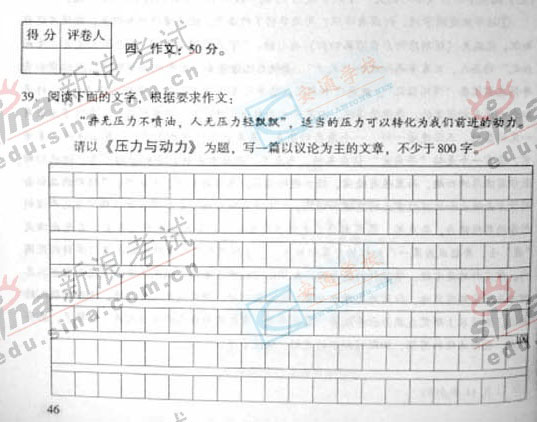 得分 评卷人
四、作文：50分。
39. 阅读下面的文字，根据要求作文：
“井无压力不喷油、人无压力轻飘飘”，适当的压力可以转化为我们前进的动力。
请以《压力与动力》为题，写一篇以议论为主的文章，不少于800字。
安通学校
新浪考试
sina
edu.sina.com.cn
新浪考试
sina
edu.sina.com.cn
安通学校
46